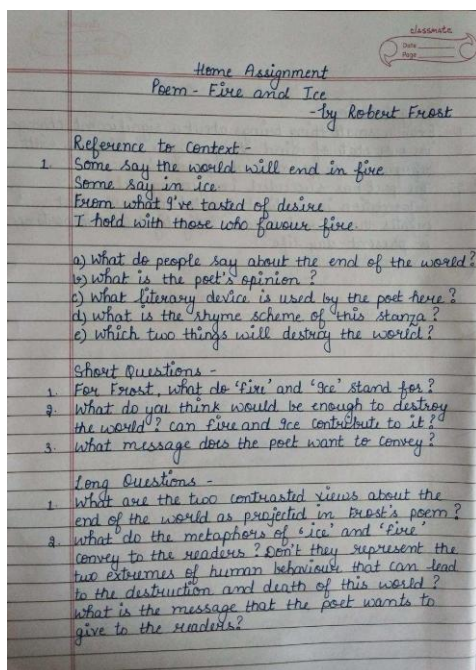 classmate
Date
Page
Home Assignment
Poem - Fire and Ice
- by Robert Frost
Reference to Context -
1. Some say the world will end in fire
Some say in ice.
From what I've tasted of desire
I hold with those who favour fire.
a) What do people say about the end of the world?
b) What is the poet's opinion?
c) What literary device is used by the poet here?
d) What is the rhyme scheme of this stanza?
e) Which two things will destroy the world?
Short Questions -
1. For Frost, what do 'fire' and 'Ice' stand for?
2. What do you think would be enough to destroy
the world? can fire and Ice contribute to it?
3. What message does the poet want to convey?
Long Questions -
1. What are the two contrasted views about the
end of the world as projected in Frost's poem?
2. What do the metaphors of 'ice' and 'fire'
convey to the readers? Don't they represent the
two extremes of human behaviour that can lead
to the destruction and death of this world?
What is the message that the poet wants to
give to the readers?